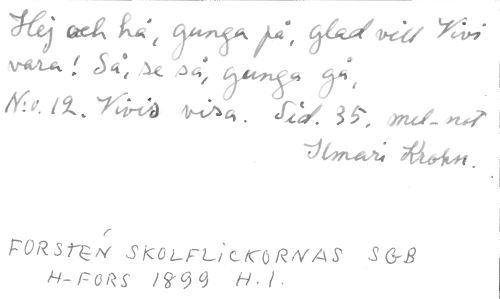 Hej och hå, gunga på, glad vill Vivi
vara! Så, se så, gunga gå,
N:o. 12. Vivis visa. Sid. 35. mel-not
Ilmari Krohn.
FORSTÉN SKOLFLICKORNAS SGB
H-FORS 1899 H.I.